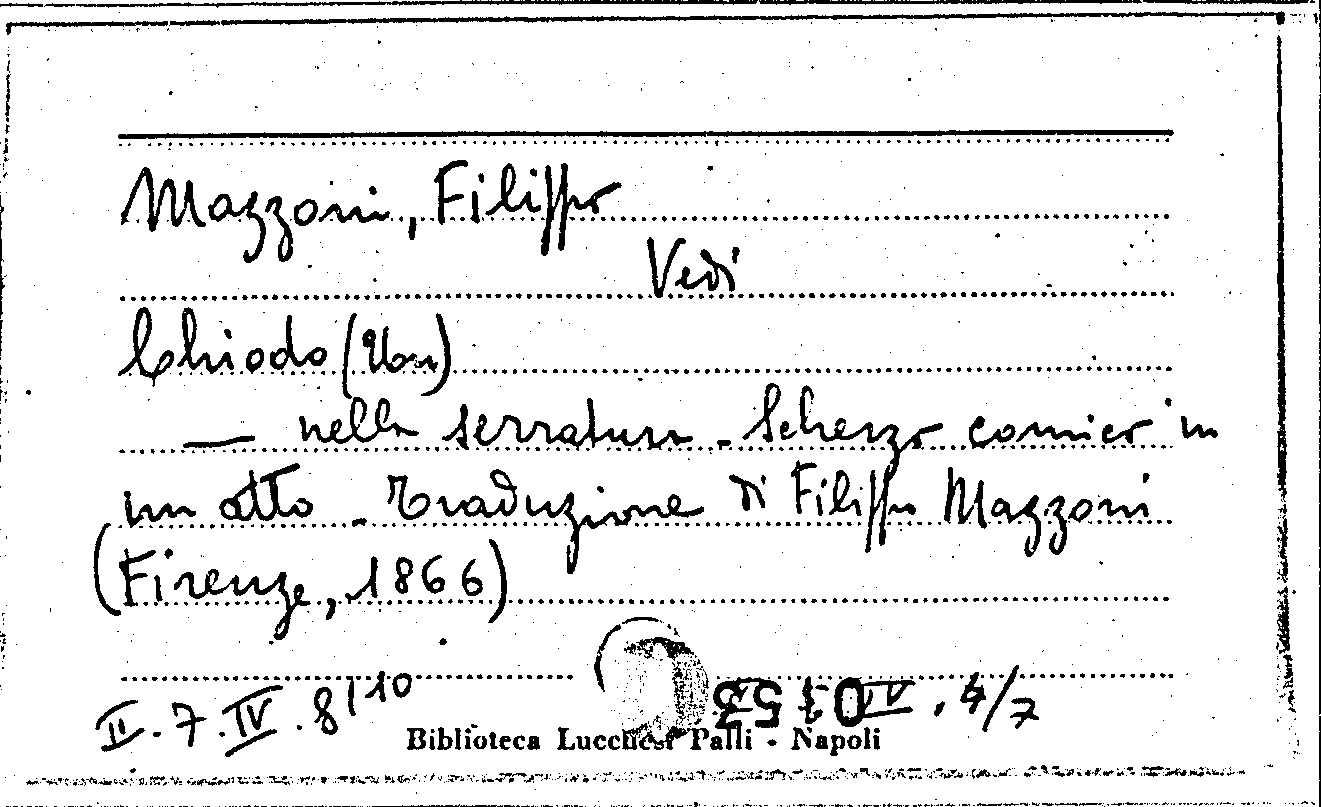 Mazzoni, Filippo
Vedi
Chiodo (Un)
— nella serratura - Scherzo comico in
un atto - Traduzione di Filippo Mazzoni
(Firenze, 1866)
II.7.IV.8/10
, 4/7
Biblioteca Lucchesi Palli - Napoli